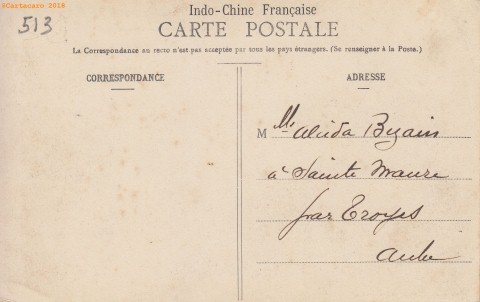 ©Cartacaro 2018
513
Indo-Chine Française
CARTE POSTALE
La Correspondance au recto n'est pas acceptée par tous les pays étrangers. (Se renseigner à la Poste.)
CORRESPONDANCE
ADRESSE
M lle Alida
à Sainte Maure
par Troyes
Aube